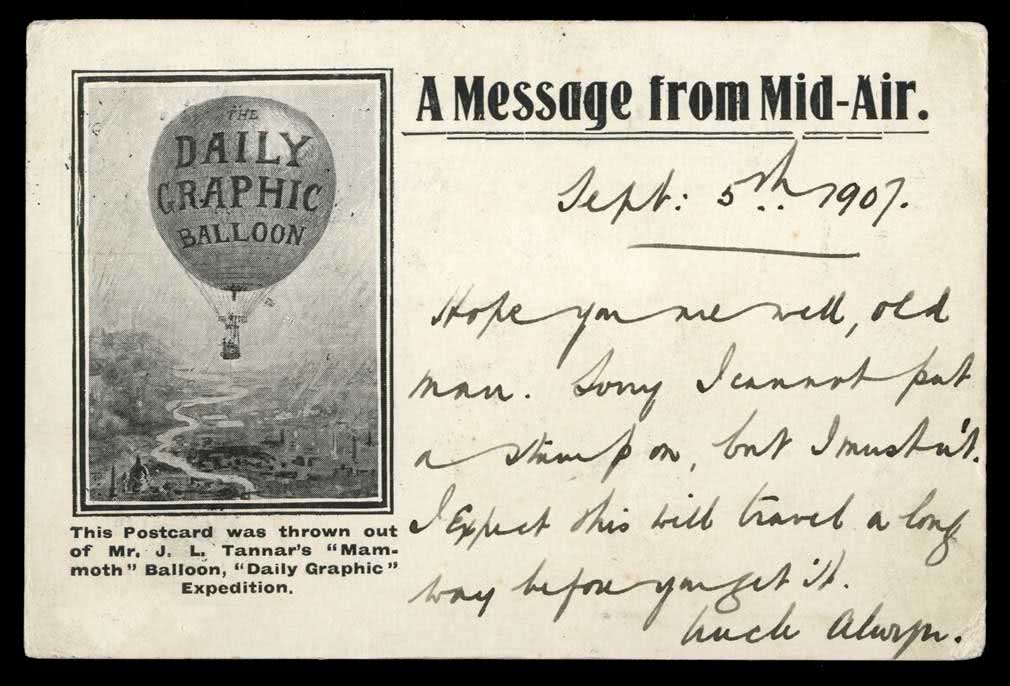 THE
DAILY
GRAPHIC
BALLOON
This Postcard was thrown out
of Mr. J. L. Tannar's "Mam-
moth" Balloon, "Daily Graphic"
Expedition.
A Message from Mid-Air.
Sept: 5th 1907.
Hope you are well, old
man. Sorry I cannot put
a stamp on, but I mustn't.
I expect this will travel a long
way before you get it.
Uncle Alwyn.